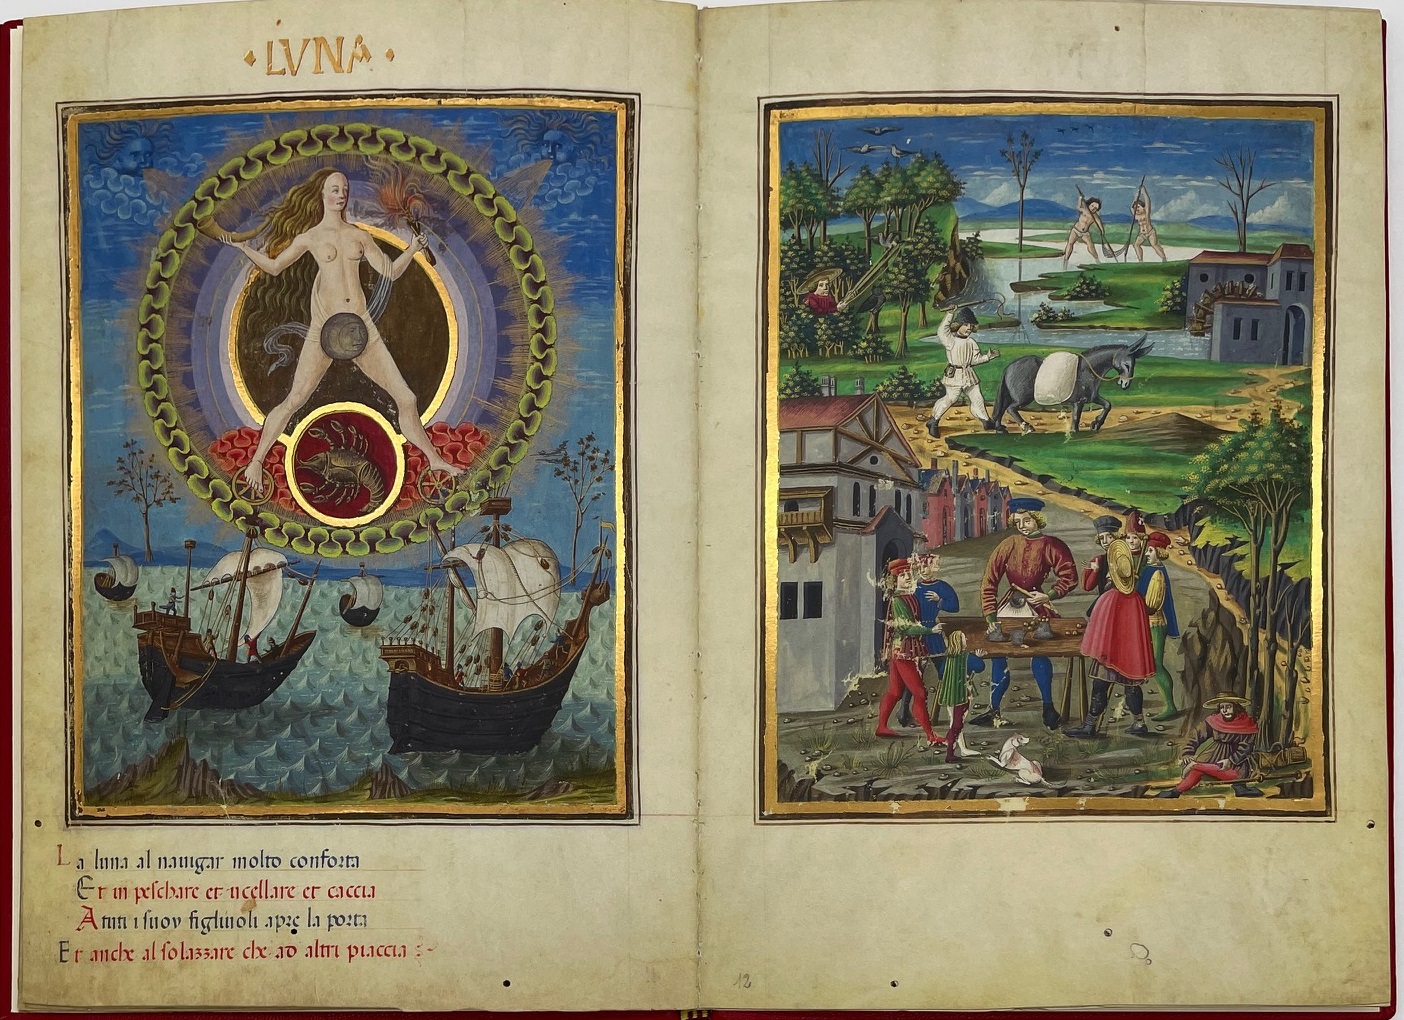 · LVNA ·
La luna al nauigar molto conforta
Et in peschare et ucellare et caccia
A tuti i suoy figliuoli apre la porta
Et anche al solazzare che ad altri piaccia :~
12